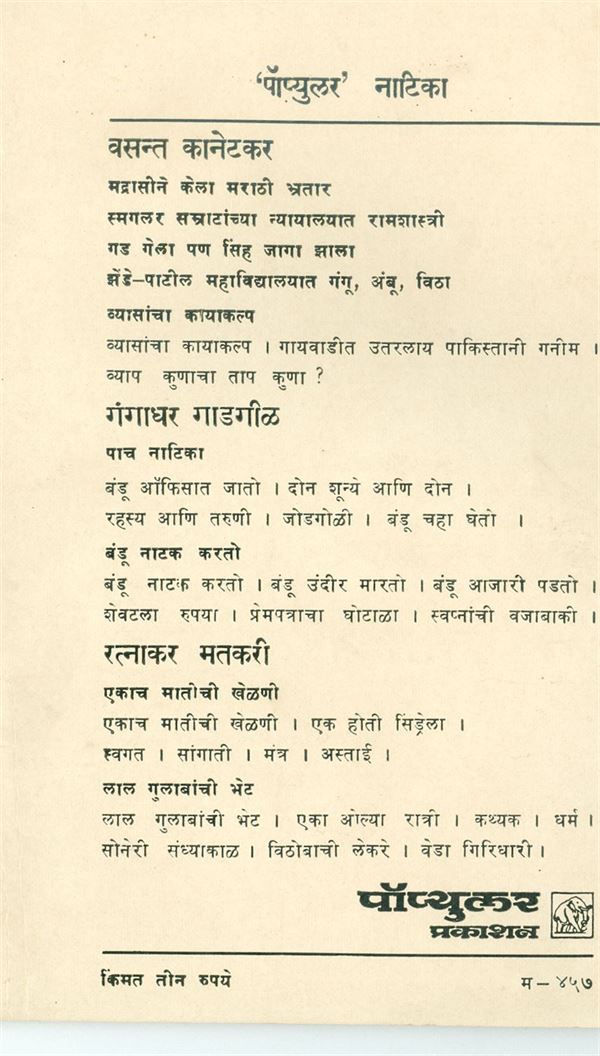 ‘पॉप्युलर’ नाटिका
वसन्त कानेटकर
मद्रासीने केला मराठी भ्रतार
स्मगलर सम्राटांच्या न्यायालयात रामशास्त्री
गड गेला पण सिंह जागा झाला
झेंडे–पाटील महाविद्यालयात गंगू, अंबू, विठा
व्यासांचा कायाकल्प
व्यासांचा कायाकल्प । गायवाडीत उतरलाय पाकिस्तानी गनीम ।
व्याप कुणाचा ताप कुणा ?
गंगाधर गाडगीळ
पाच नाटिका
बंडू ऑफिसात जातो । दोन शून्ये आणि दोन ।
रहस्य आणि तरुणी । जोडगोळी । बंडू चहा घेतो ।
बंडू नाटक करतो
बंडू नाटक करतो । बंडू उंदीर मारतो । बंडू आजारी पडतो ।
शेवटला रुपया । प्रेमपत्राचा घोटाळा । स्वप्नांची वजाबाकी ।
रत्नाकर मतकरी
एकाच मातीची खेळणी
एकाच मातीची खेळणी । एक होती सिंड्रेला ।
स्वगत । सांगाती । मंत्र । अस्ताई ।
लाल गुलाबांची भेट
लाल गुलाबांची भेट । एका ओल्या रात्री । कथ्थक । धर्म ।
सोनेरी संध्याकाळ । विठोबाची लेकरे । वेडा गिरिधारी ।
पॉप्युलर
प्रकाशन
किंमत तीन रुपये
म – ४५७